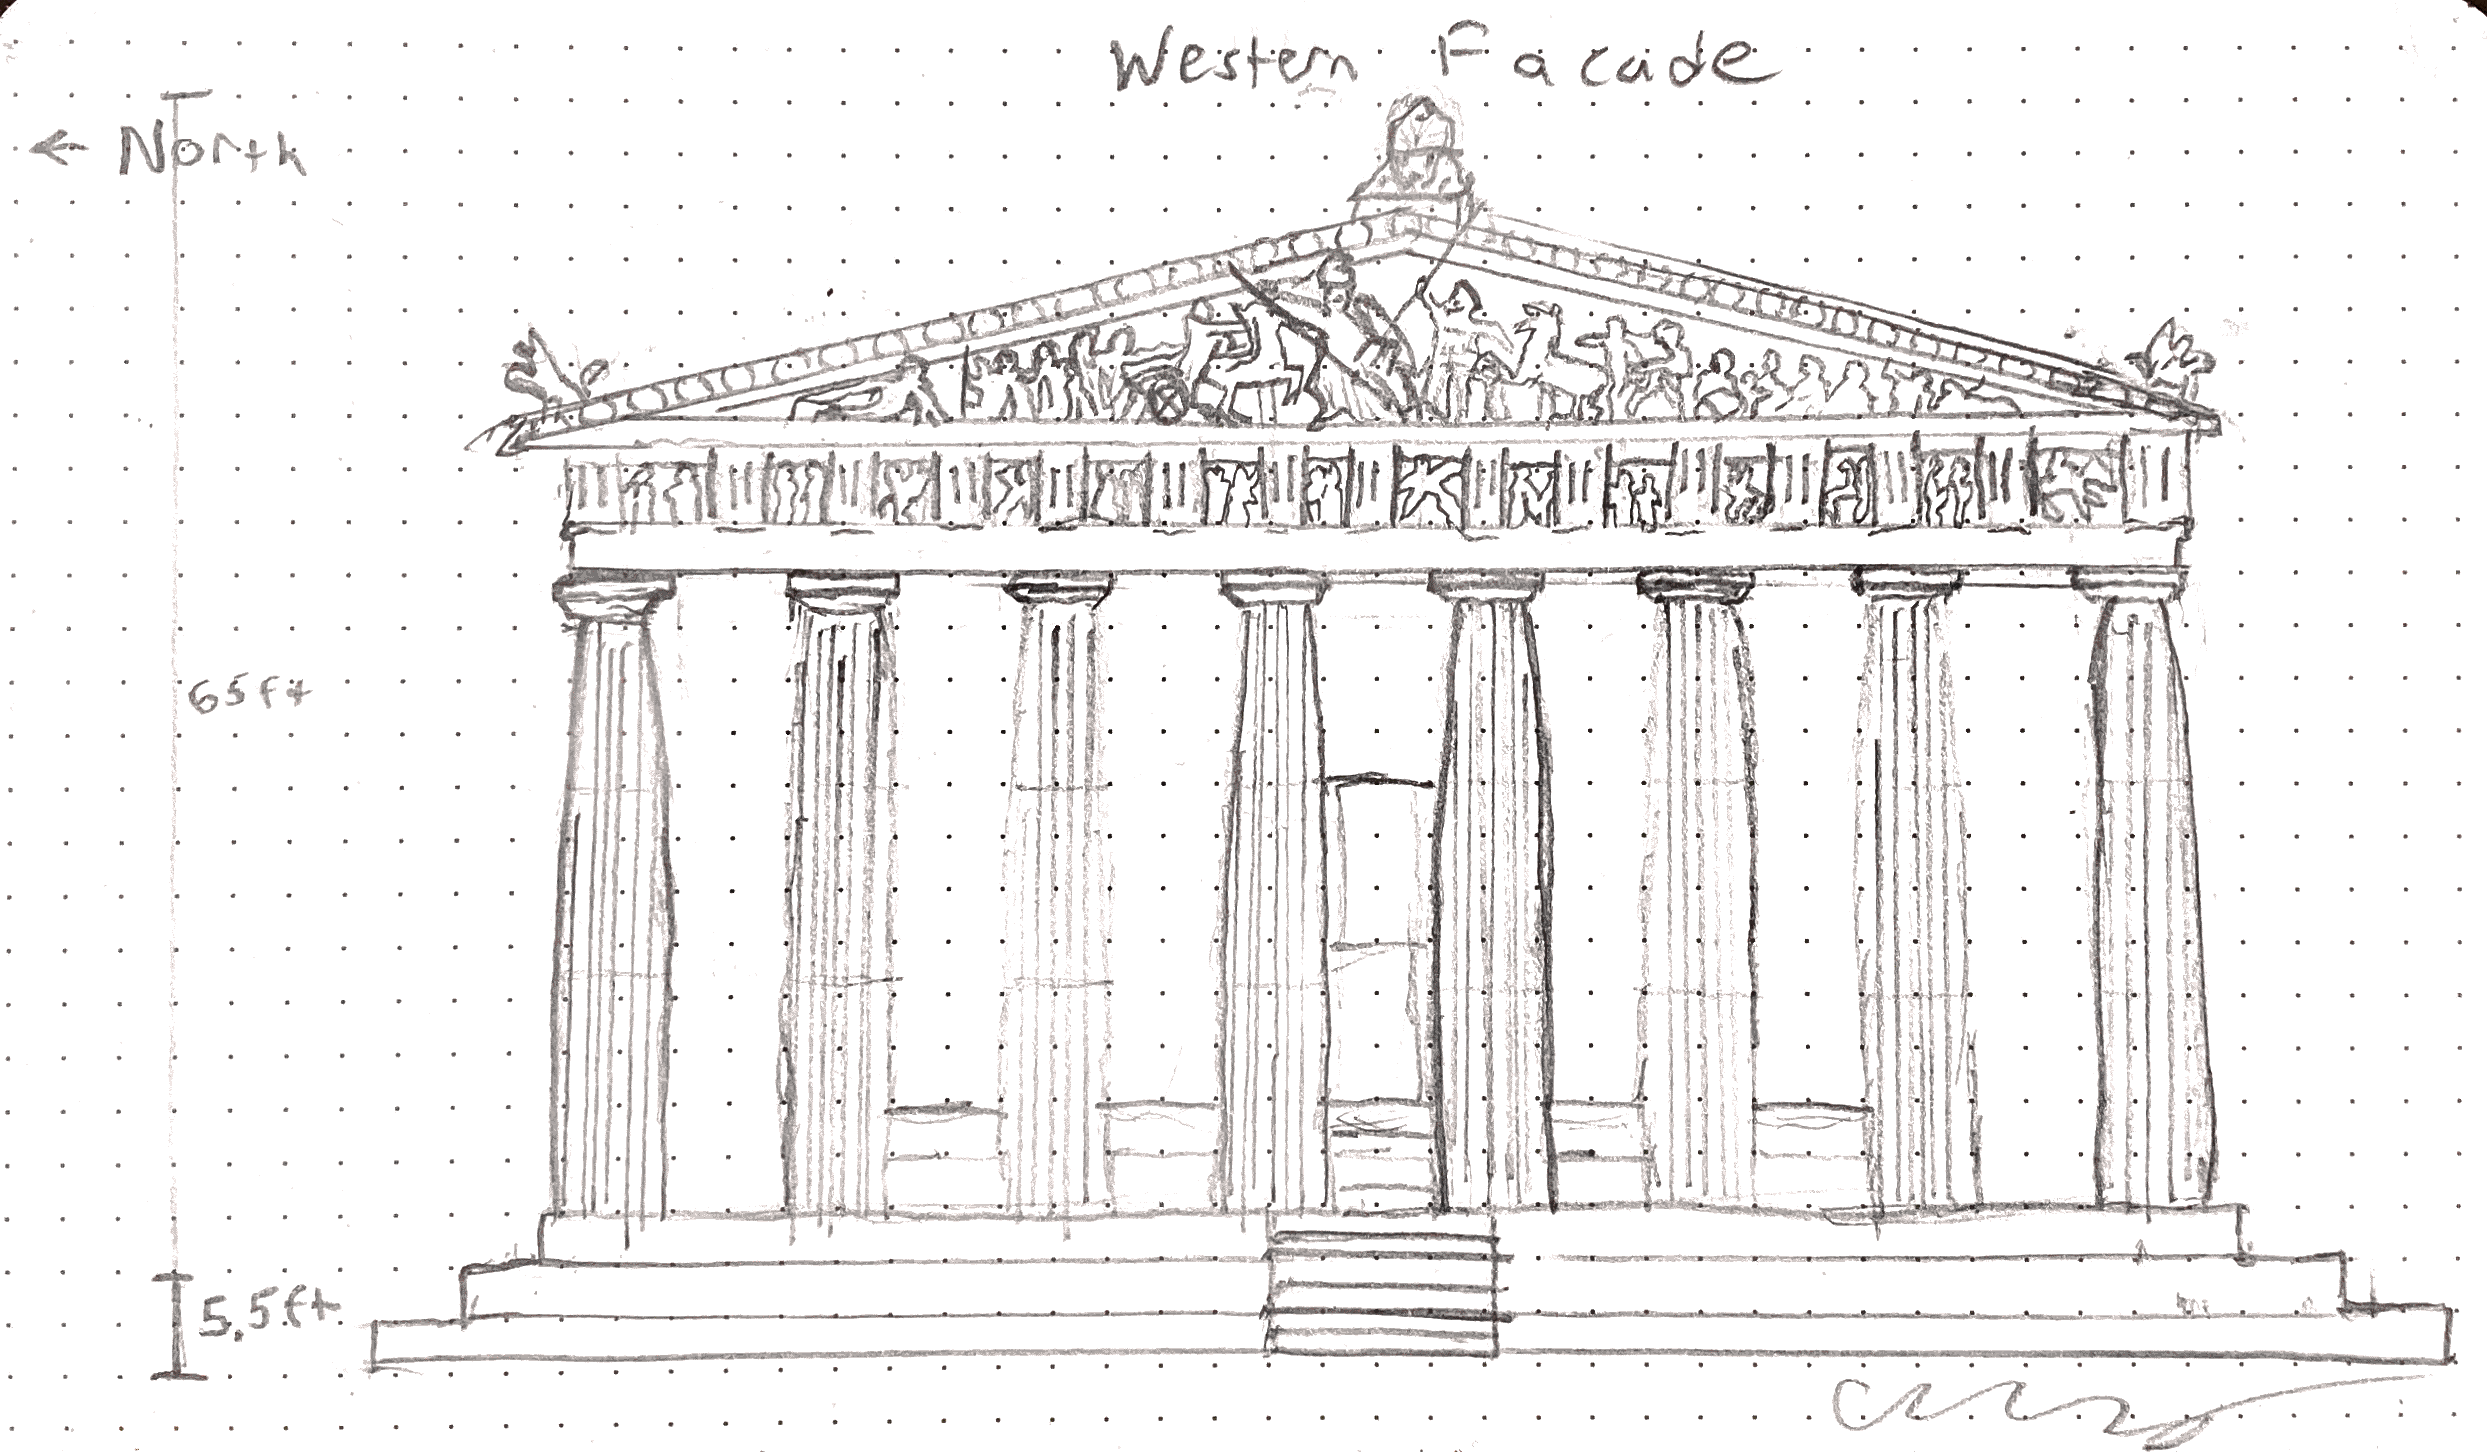 Western Facade
← North
65ft
5.5ft